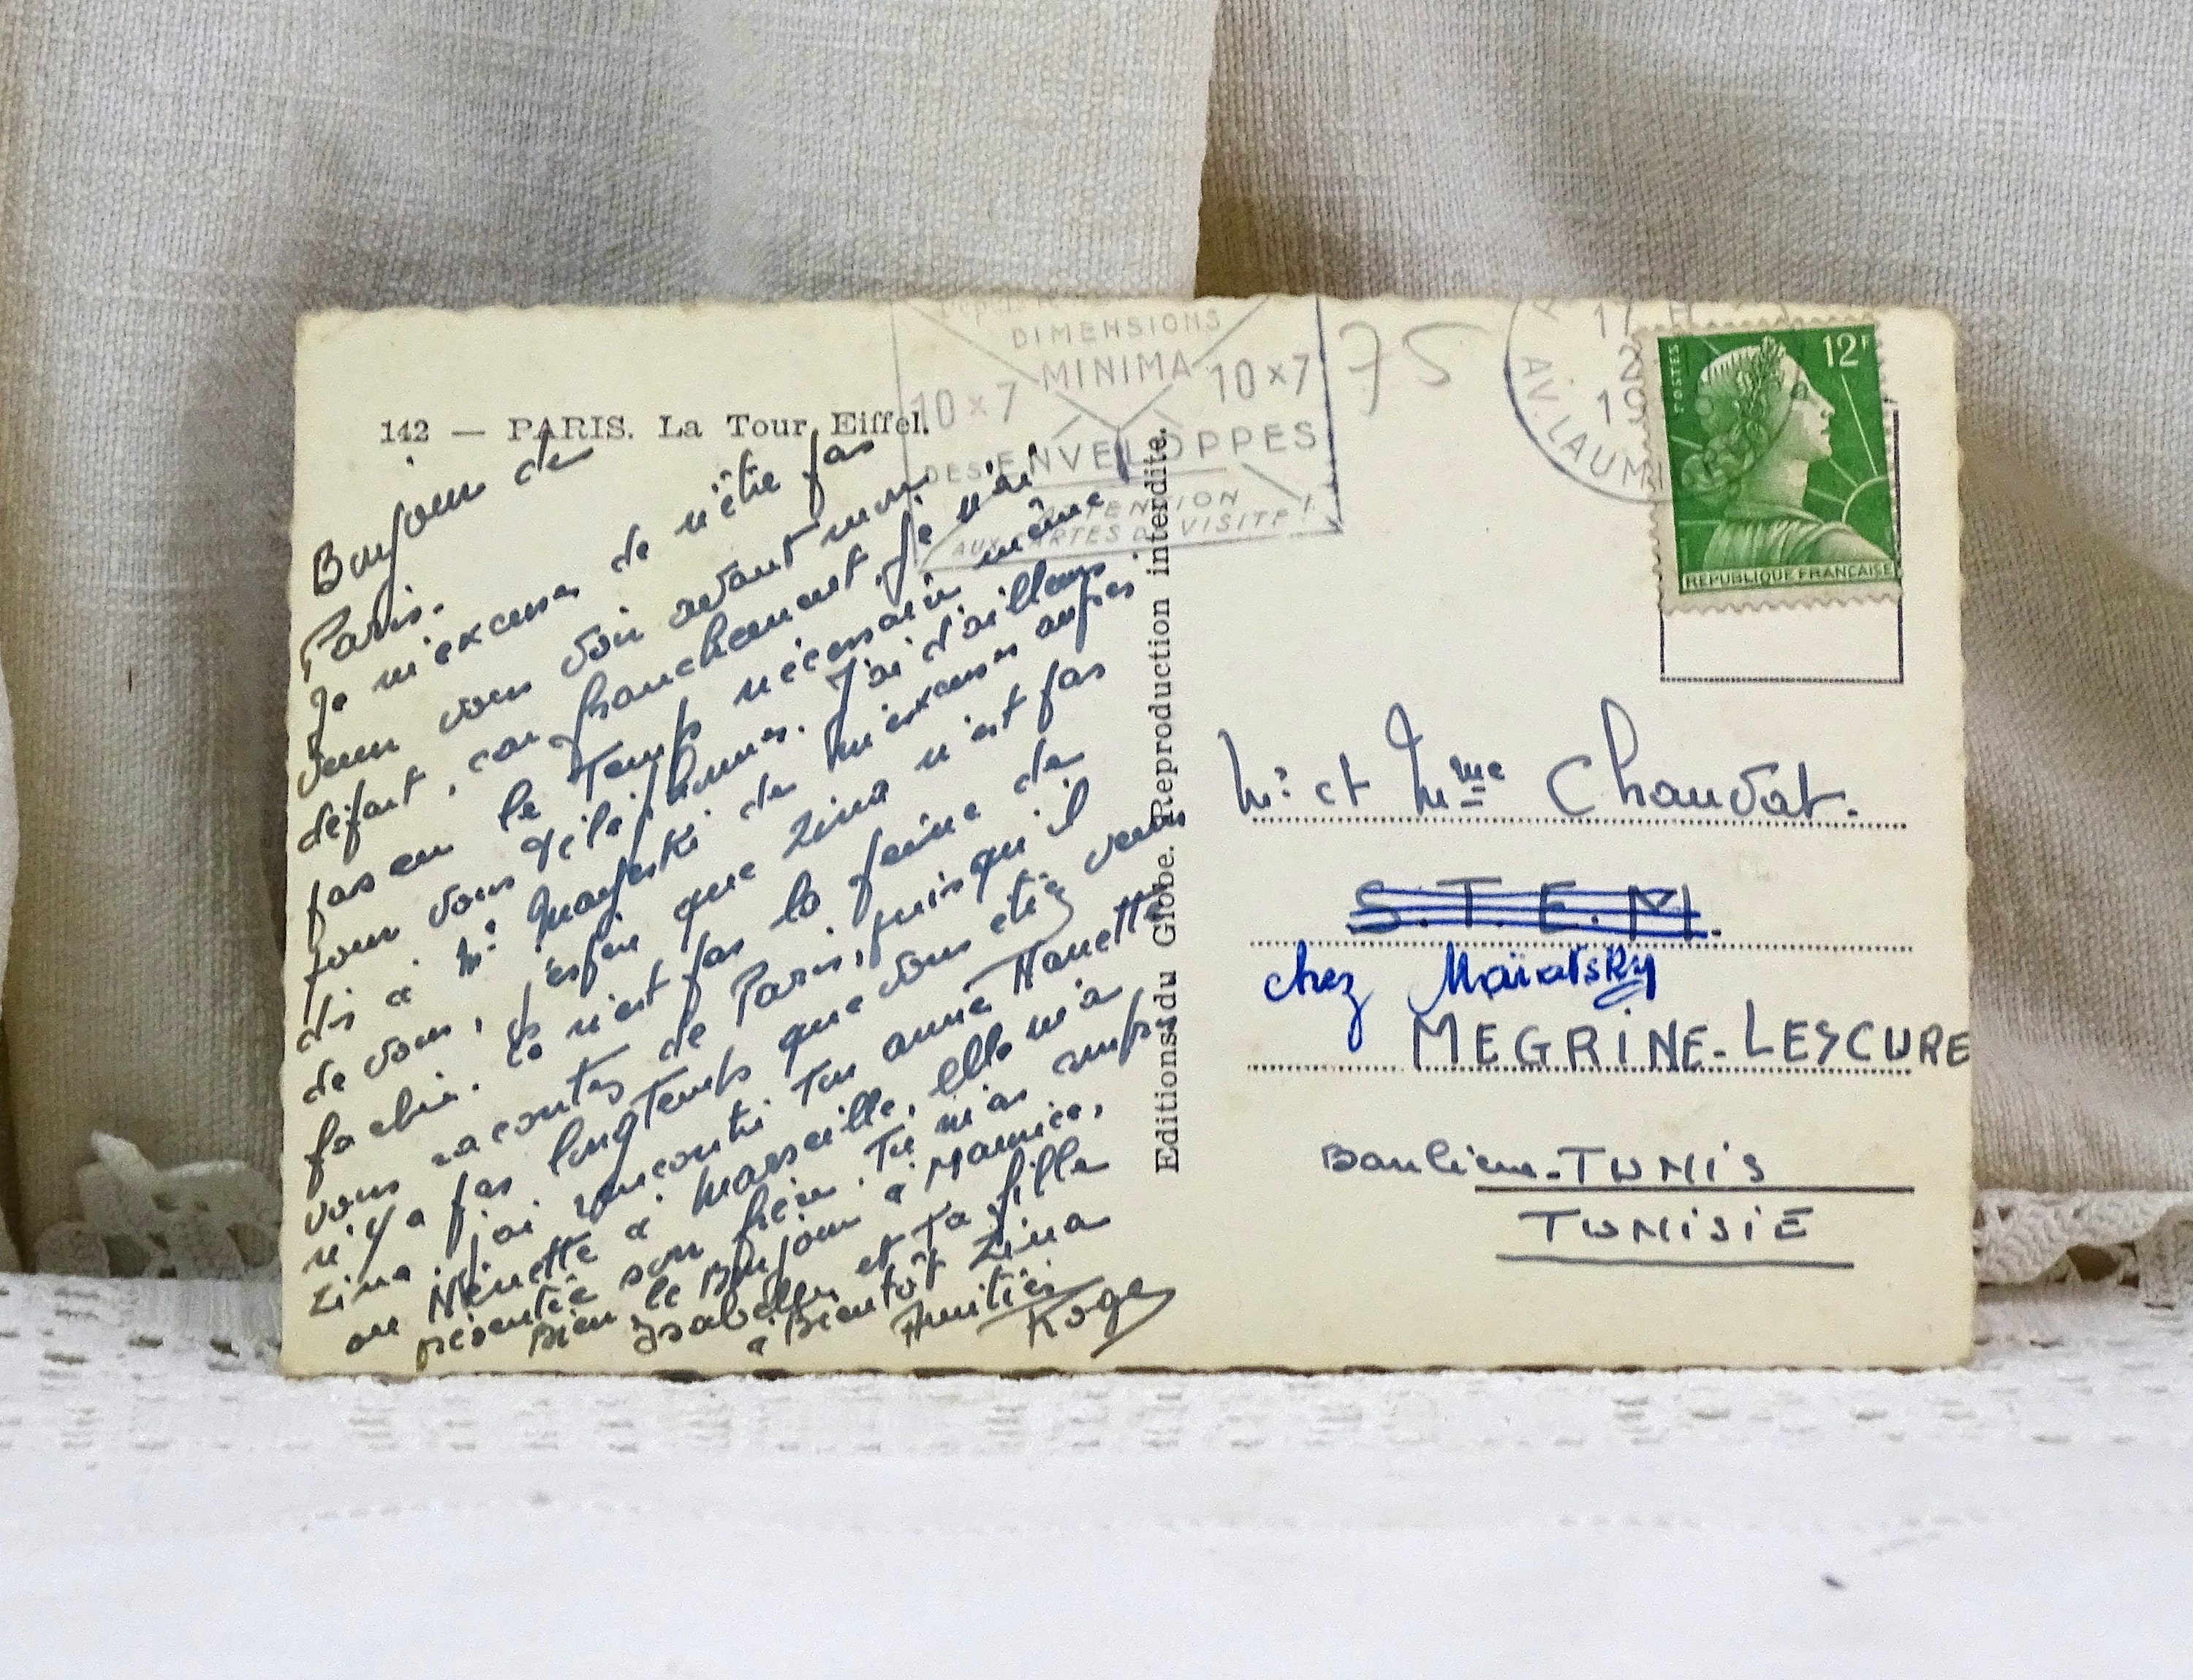 142 — PARIS. La Tour Eiffel.
Bonjour de
Paris.
Je m'excuse de n'être pas
venu vous voir avant mon
départ, car franchement je n'ai
pas eu le temps nécessaire même
pour vous téléphoner. J'ai d'ailleurs
dis à Mr de m'excuser auprès
de vous, j'espère que Zina n'est pas
fachée. Ce n'est pas la peine de
vous raconter de Paris, puisqu'il
n'y a pas longtemps que vous etiez venus
Zina, j'ai rencontré ton amie Nanette
ou Nénette à Marseille, elle m'a
présentée son frère. Tu m'as
Bien le Bonjour à Maurice,
Isabelle et ta fille
à Bientôt Zina
Amitiés
Roger
Editions du Globe. Reproduction interdite.
DIMENSIONS
MINIMA
10 x 7 10 x 7
DES ENVELOPPES
ATTENTION
AUX CARTES DE VISITE !
75
17
2
19
AV. LAUMI
POSTES
12F
REPUBLIQUE FRANÇAISE
Mr et Mme Chauvat.
S.T.E.M.
chez Maïatsky
MEGRINE-LESCURE
Banlieue-TUNIS
TUNISIE